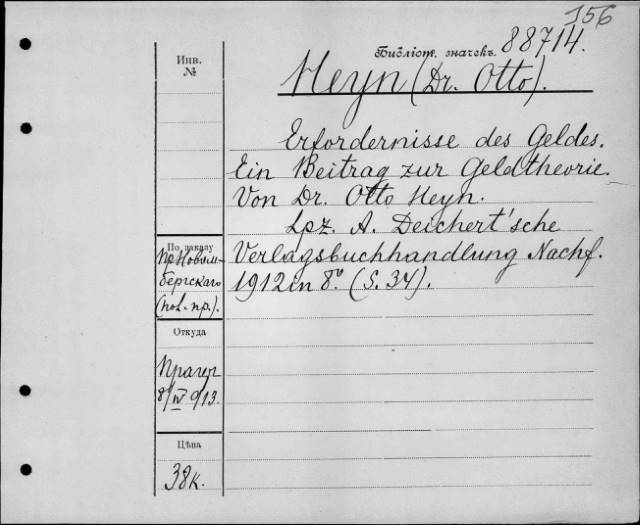 156
Библіот. значекъ. 88714.
Инв.
№
Heyn (Dr. Otto).
Erfordernisse des Geldes.
Ein Beitrag zur Geldtheorie.
Von Dr. Otto Heyn.
Lpz. A. Deichert'sche
Verlagsbuchhandlung Nachf.
1912 in 8º. (S. 34).
По заказу
пр. Новом-
бергскаго
(нов. пр.).
Откуда
Прагеръ
8/IV 913.
Цѣна
38к.